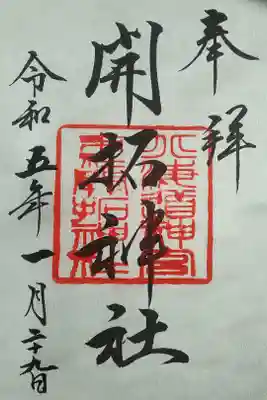 奉拝
開拓神社
令和五年一月二十九日